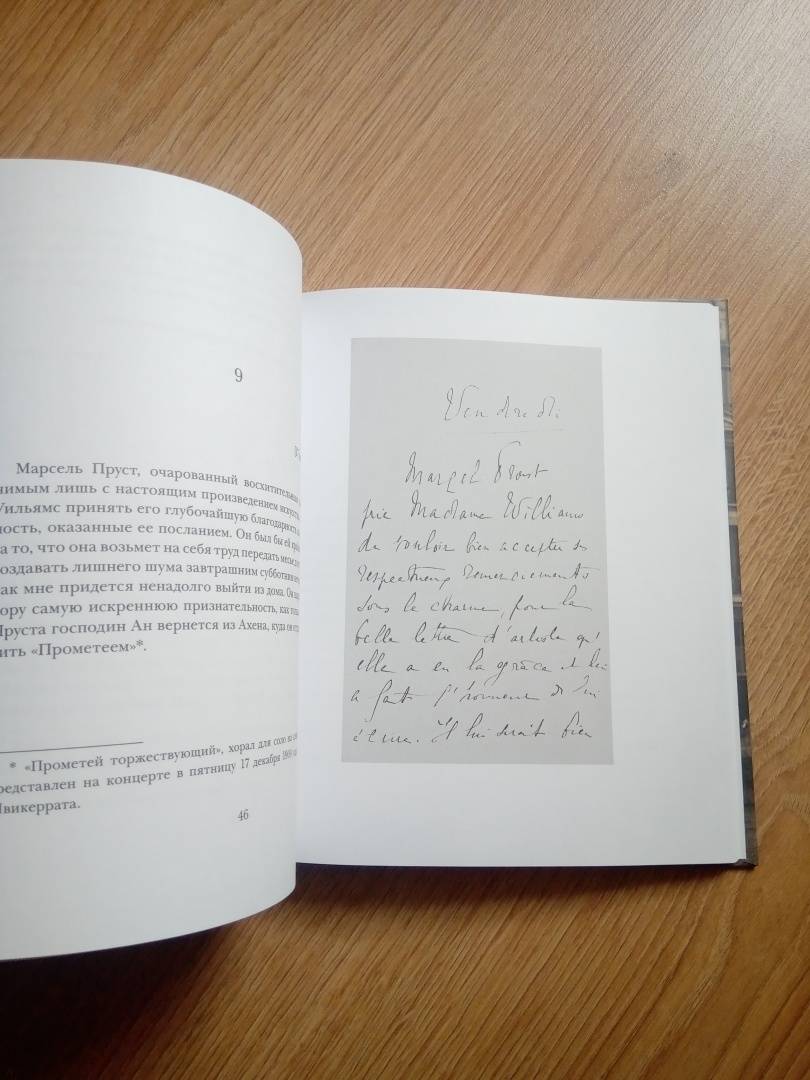 9
Марсель Пруст, очарованный восхитительным
нимым лишь с настоящим произведением искусства
Уильямс принять его глубочайшую благодарность
ность, оказанные ее посланием. Он был бы ей
а то, что она возьмет на себя труд передать
оздавать лишнего шума завтрашним субботним
ак мне придется ненадолго выйти из дома. Он
ору самую искреннюю признательность, как
Пруста господин Ан вернется из Ахена, куда он
ить «Прометеем»*.
* «Прометей торжествующий», хорал для соло
редставлен на концерте в пятницу 17 декабря 1909
Ивикеррата.
46
Vendredi
Marcel Proust
prie Madame Williams
de vouloir bien accepter ses
respectueux remerciements
sous le charme, pour la
belle lettre d'artiste qu'
elle a eu la grâce et lui
a fait l'honneur de lui
écrire. Il lui serait bien